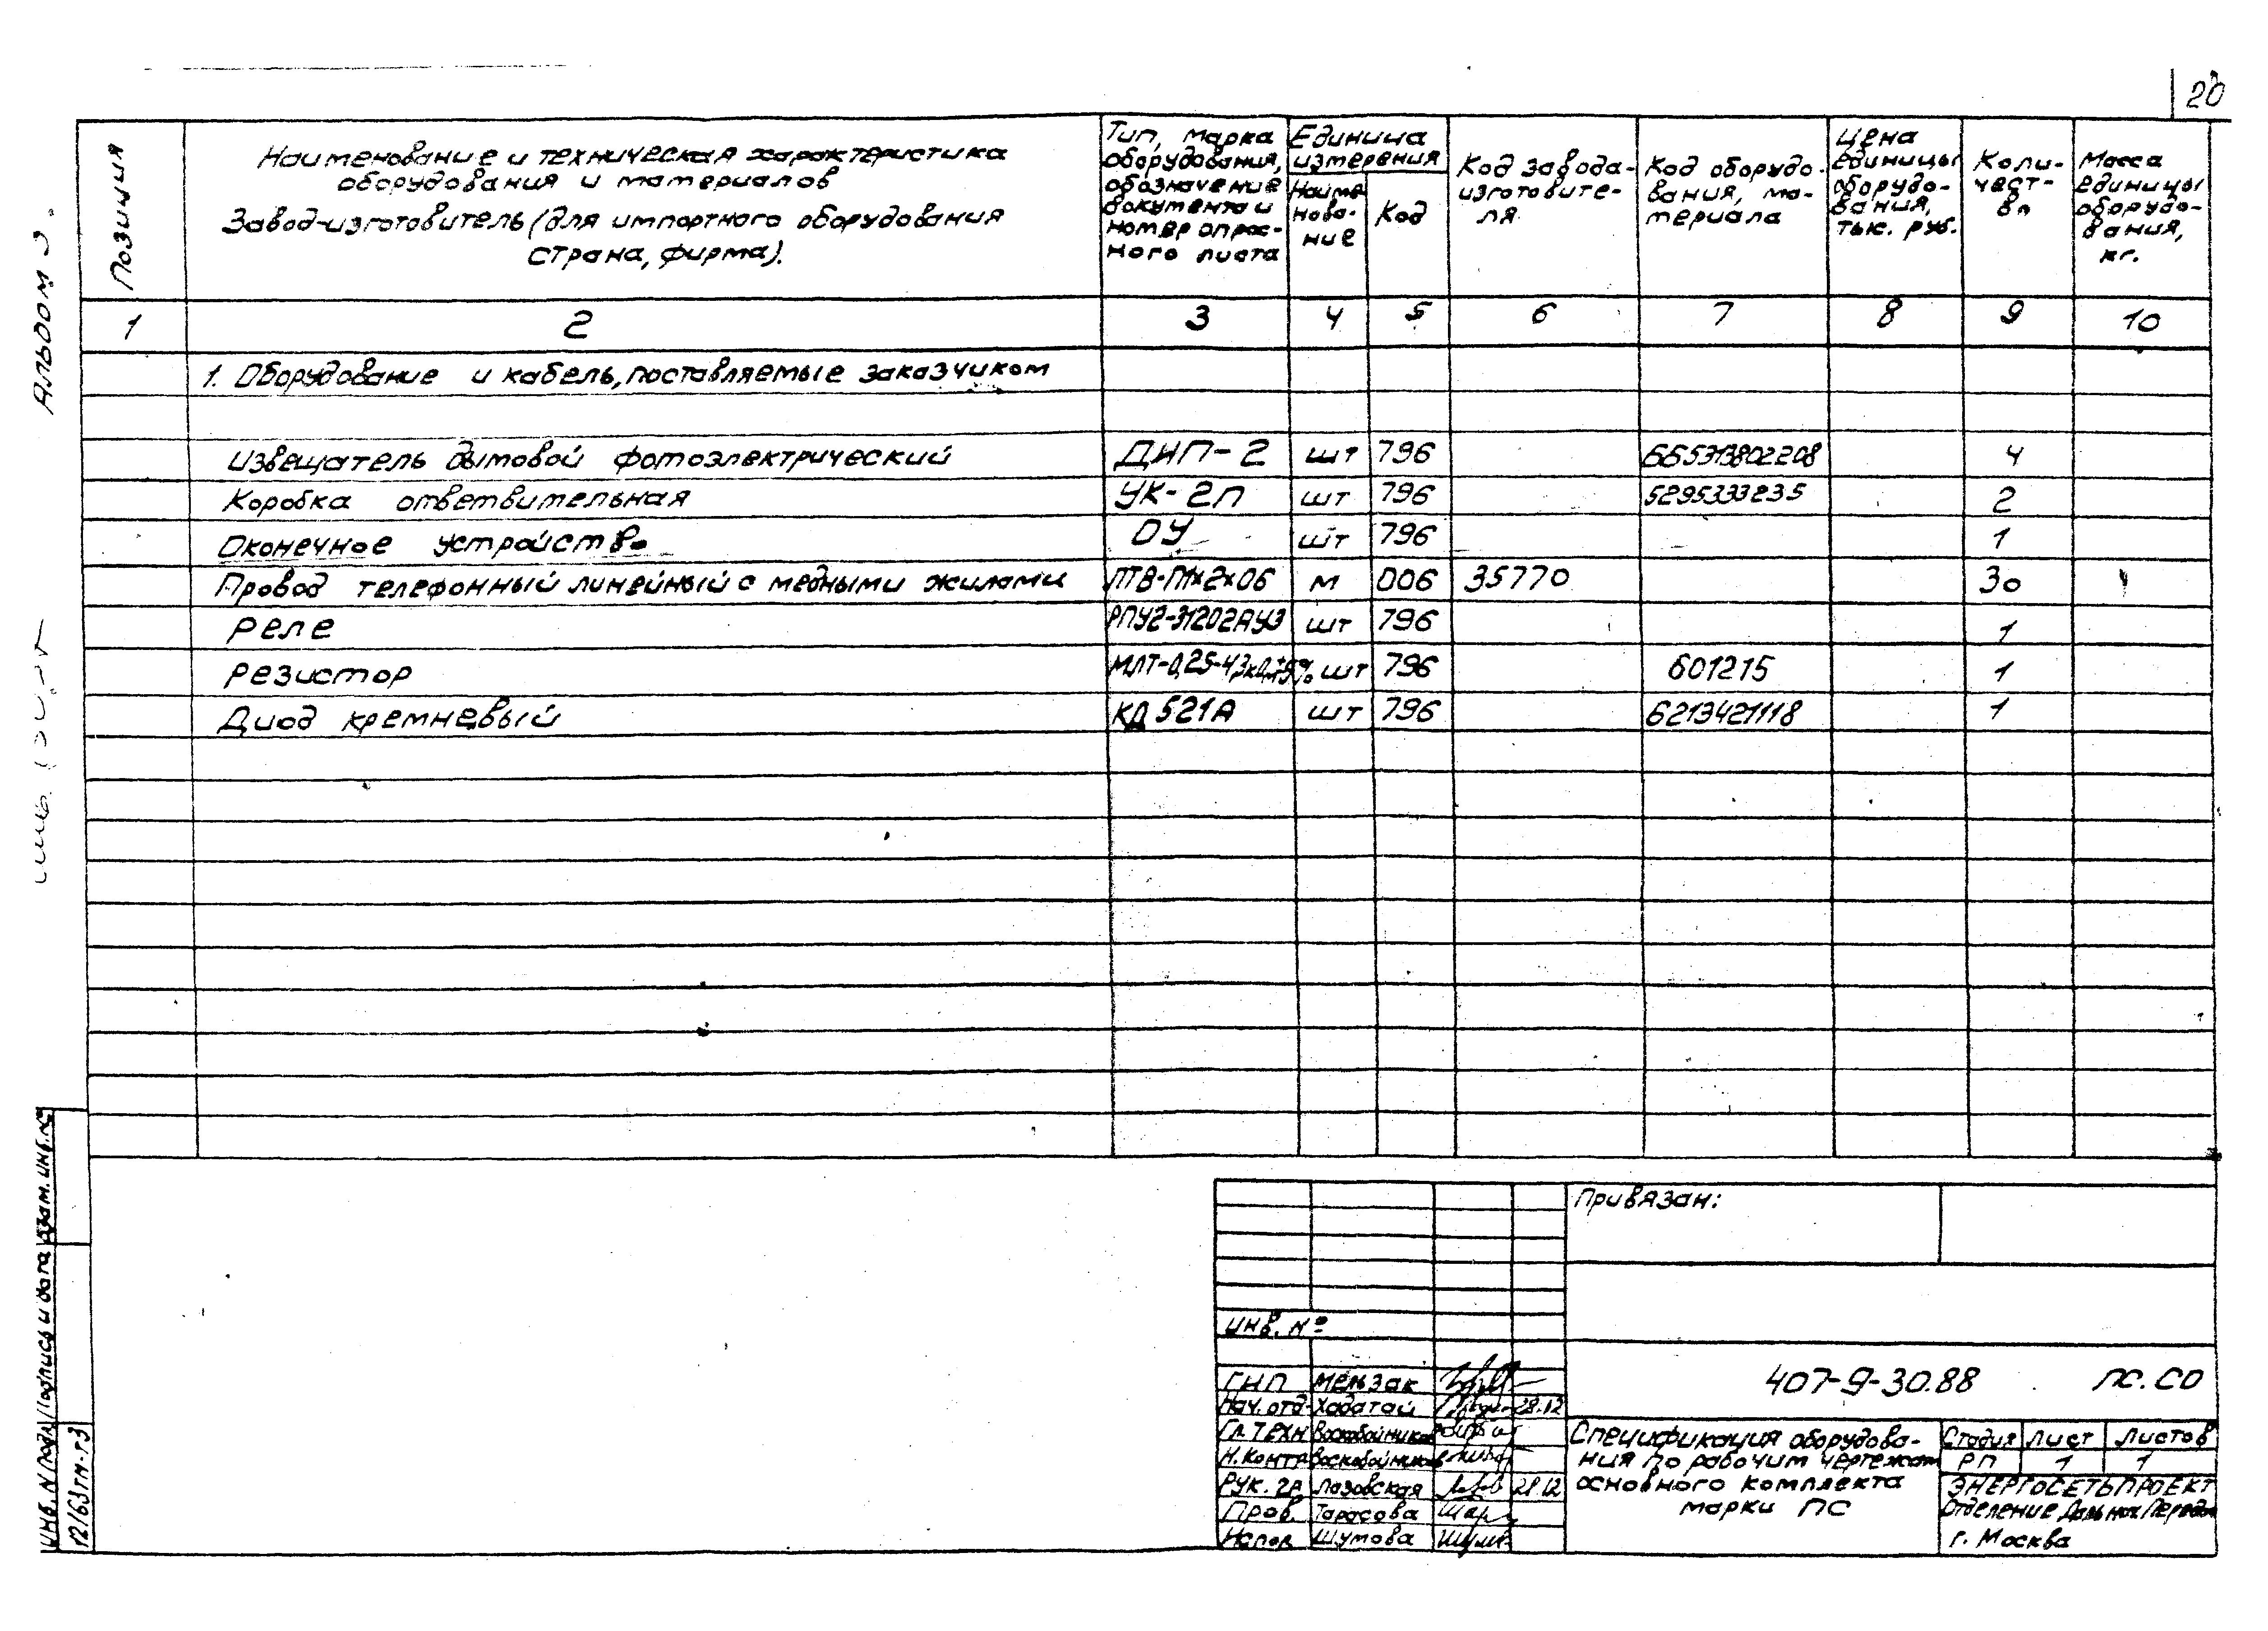 20
Альбом 3.
Позиция
Наименование и техническая характеристика
оборудования и материалов
Завод-изготовитель (для импортного оборудования
страна, фирма).
Тип, марка
оборудования,
обозначение
документа и
номер опрос-
ного листа
Единица
измерения
Наиме
нова-
ние
Код
Код завода-
изготовите-
ля
Код оборудо-
вания, ма-
териала
Цена
единицы
оборудо-
вания,
тыс. руб.
Коли-
чест-
во
Масса
единицы
оборудо-
вания,
кг.
1 2 3 4 5 6 7 8 9 10
1. Оборудование и кабель, поставляемые заказчиком
Извещатель дымовой фотоэлектрический ДИП-2 шт 796 665313802208 4
Коробка ответвительная УК-2П шт 796 5295333235 2
Оконечное устройство ОУ шт 796 1
Провод телефонный линейный с медными жилами ПТВ-П1х2х06 м 006 35770 30
Реле РПУ2-31202АУ3 шт 796 1
Резистор МЛТ-0,25-4,3кОм±5% шт 796 601215 1
Диод кремневый КД 521А шт 796 6213421118 1
Взам. инв. №
Подпись и дата
Инв. № подл.
12163тм-т3
Привязан:
Инв. №
407-9-30.88 ПС.СО
ГИП Мельзак
Нач. отд. Ходатай 28.12
Гл. техн Воскобойников
Н. контр Воскобойников
Рук. гр. Лазовская 28.12
Пров. Тарасова
Испол. Шумова
Спецификация оборудова-
ния по рабочим чертежам
основного комплекта
марки ПС
Стадия Лист Листов
РП 1 1
ЭНЕРГОСЕТЬПРОЕКТ
Отделение Дальних Передач
г. Москва